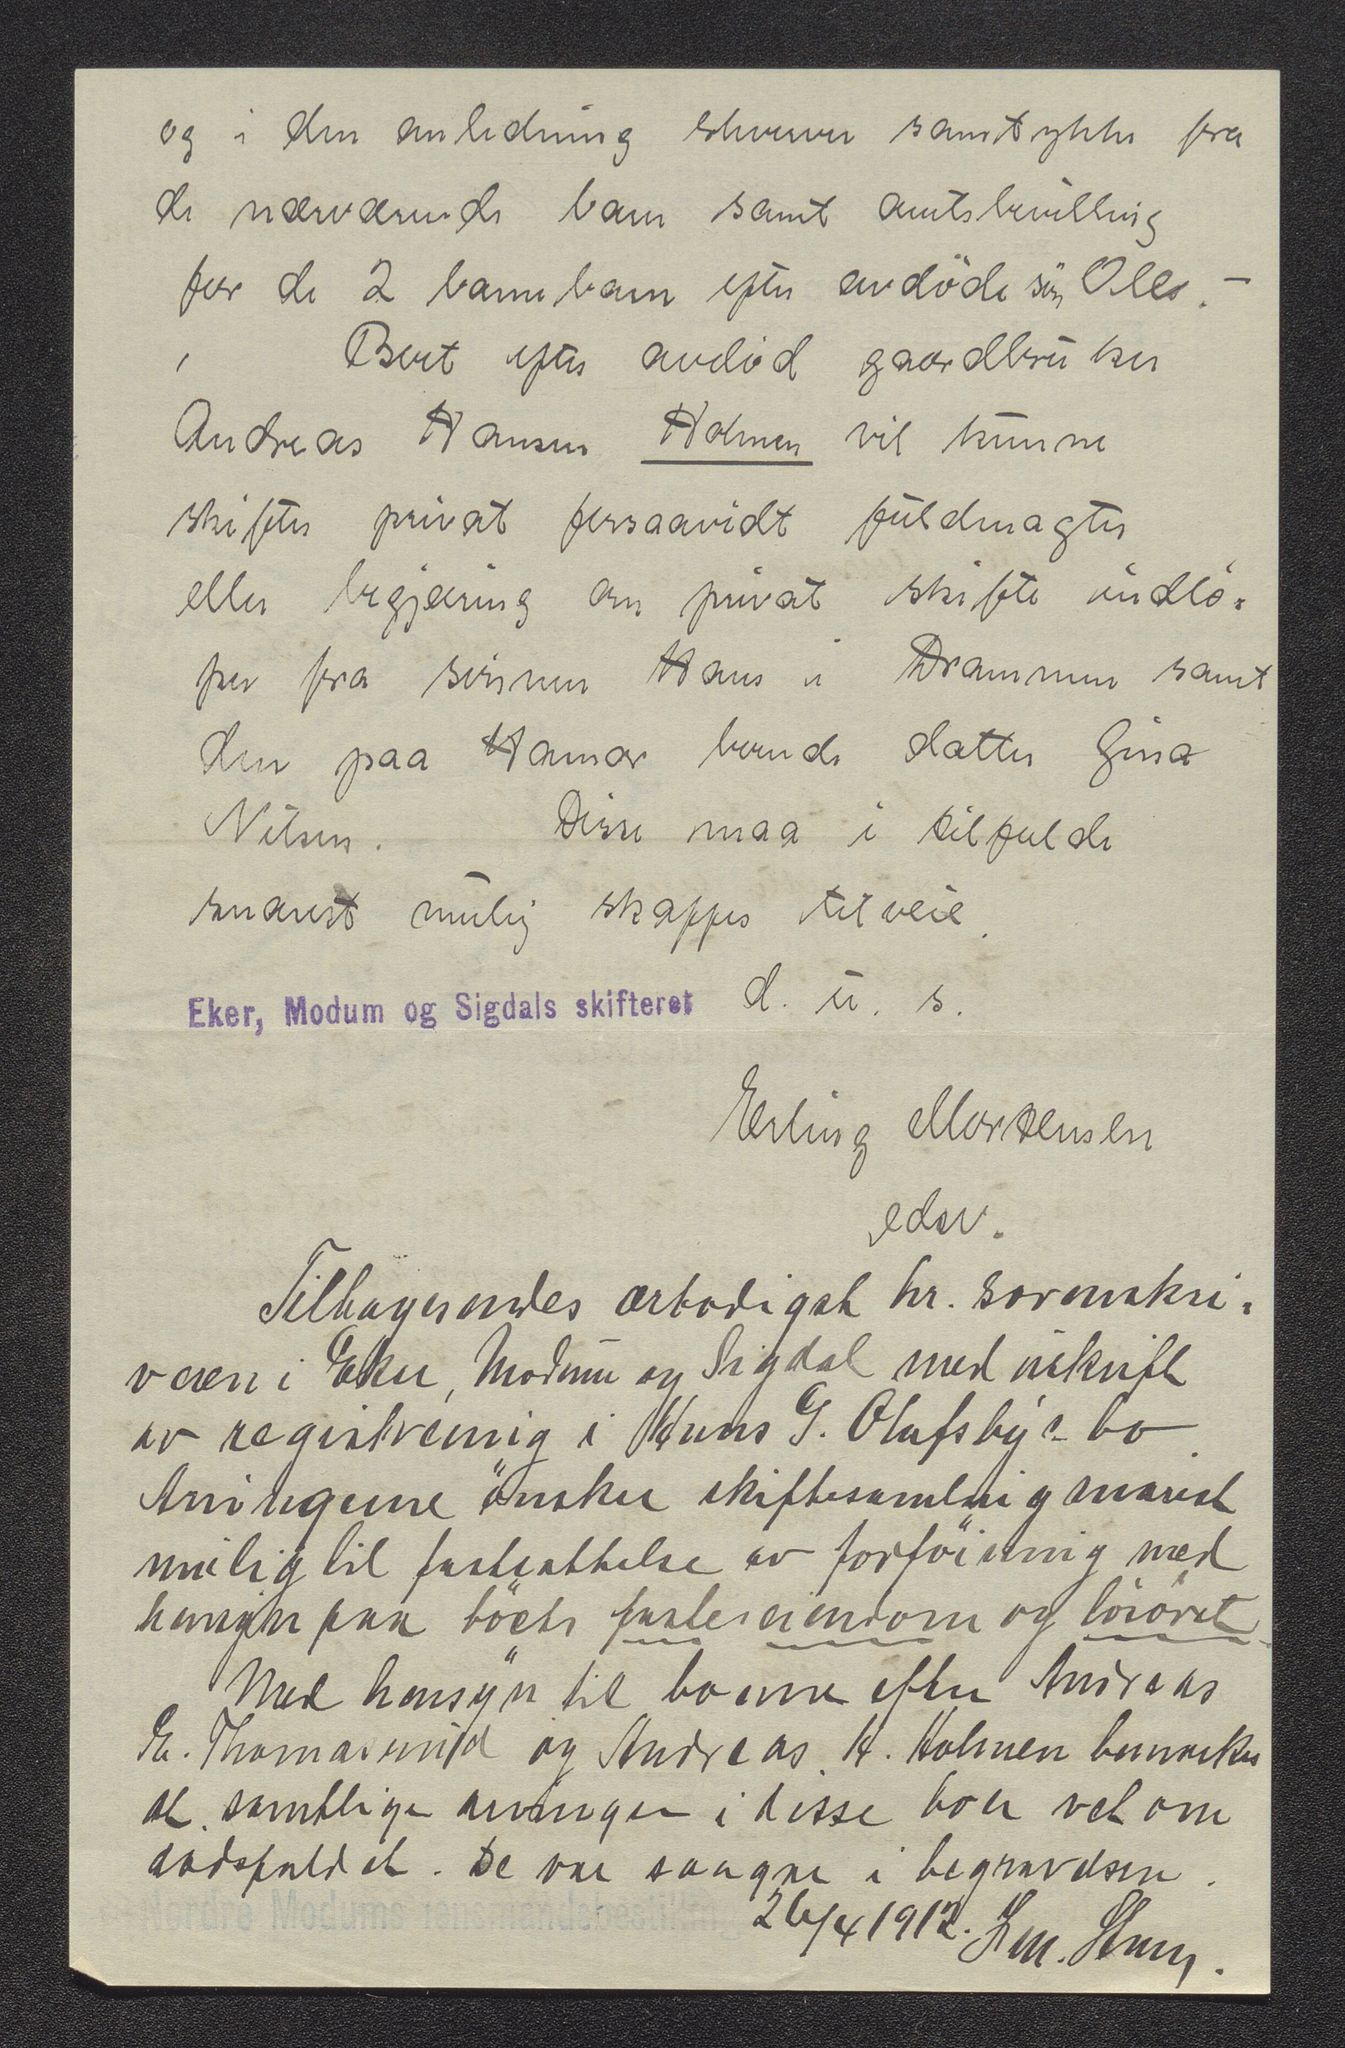 og i den anledning erhverve samtykke fra
de nærværende barn samt amtsbevilling
for de 2 barnebarn efter avdöde sön Oles. –
Boet efter avdöd gaardbruker
Andreas Hansen Holmen vil kunne
skiftes privat forsaavidt fuldmagter
eller begjæring om privat skifte indlö-
per fra sönnen Hans i Drammen samt
den paa Hamar boende datter Gina
Nilsen. Disse maa i tilfælde
snarest mulig skaffes tilveie.
Eker, Modum og Sigdals skifteret d. u. s.
Erling Mortensen
edsv.
Tilbagesendes ærbødigst hr. sorenskri-
veren i Eker, Modum og Sigdal med utskrift
av registrering i Hans G. Olafsby's bo.
Arvingerne önsker skiftesamling snarest
mulig til fastsættelse av forföining med
hensyn paa böets faste eiendom og lösöret.
Med hensyn til boerne efter Andreas
E. Thomasrud og Andreas H. Holmen bemærkes
at samtlige arvinger i disse boer vet om
dödsfaldet. De var saagar i begravelsen.
Nordre Modums lensmandsbestilling 26/4 1912.